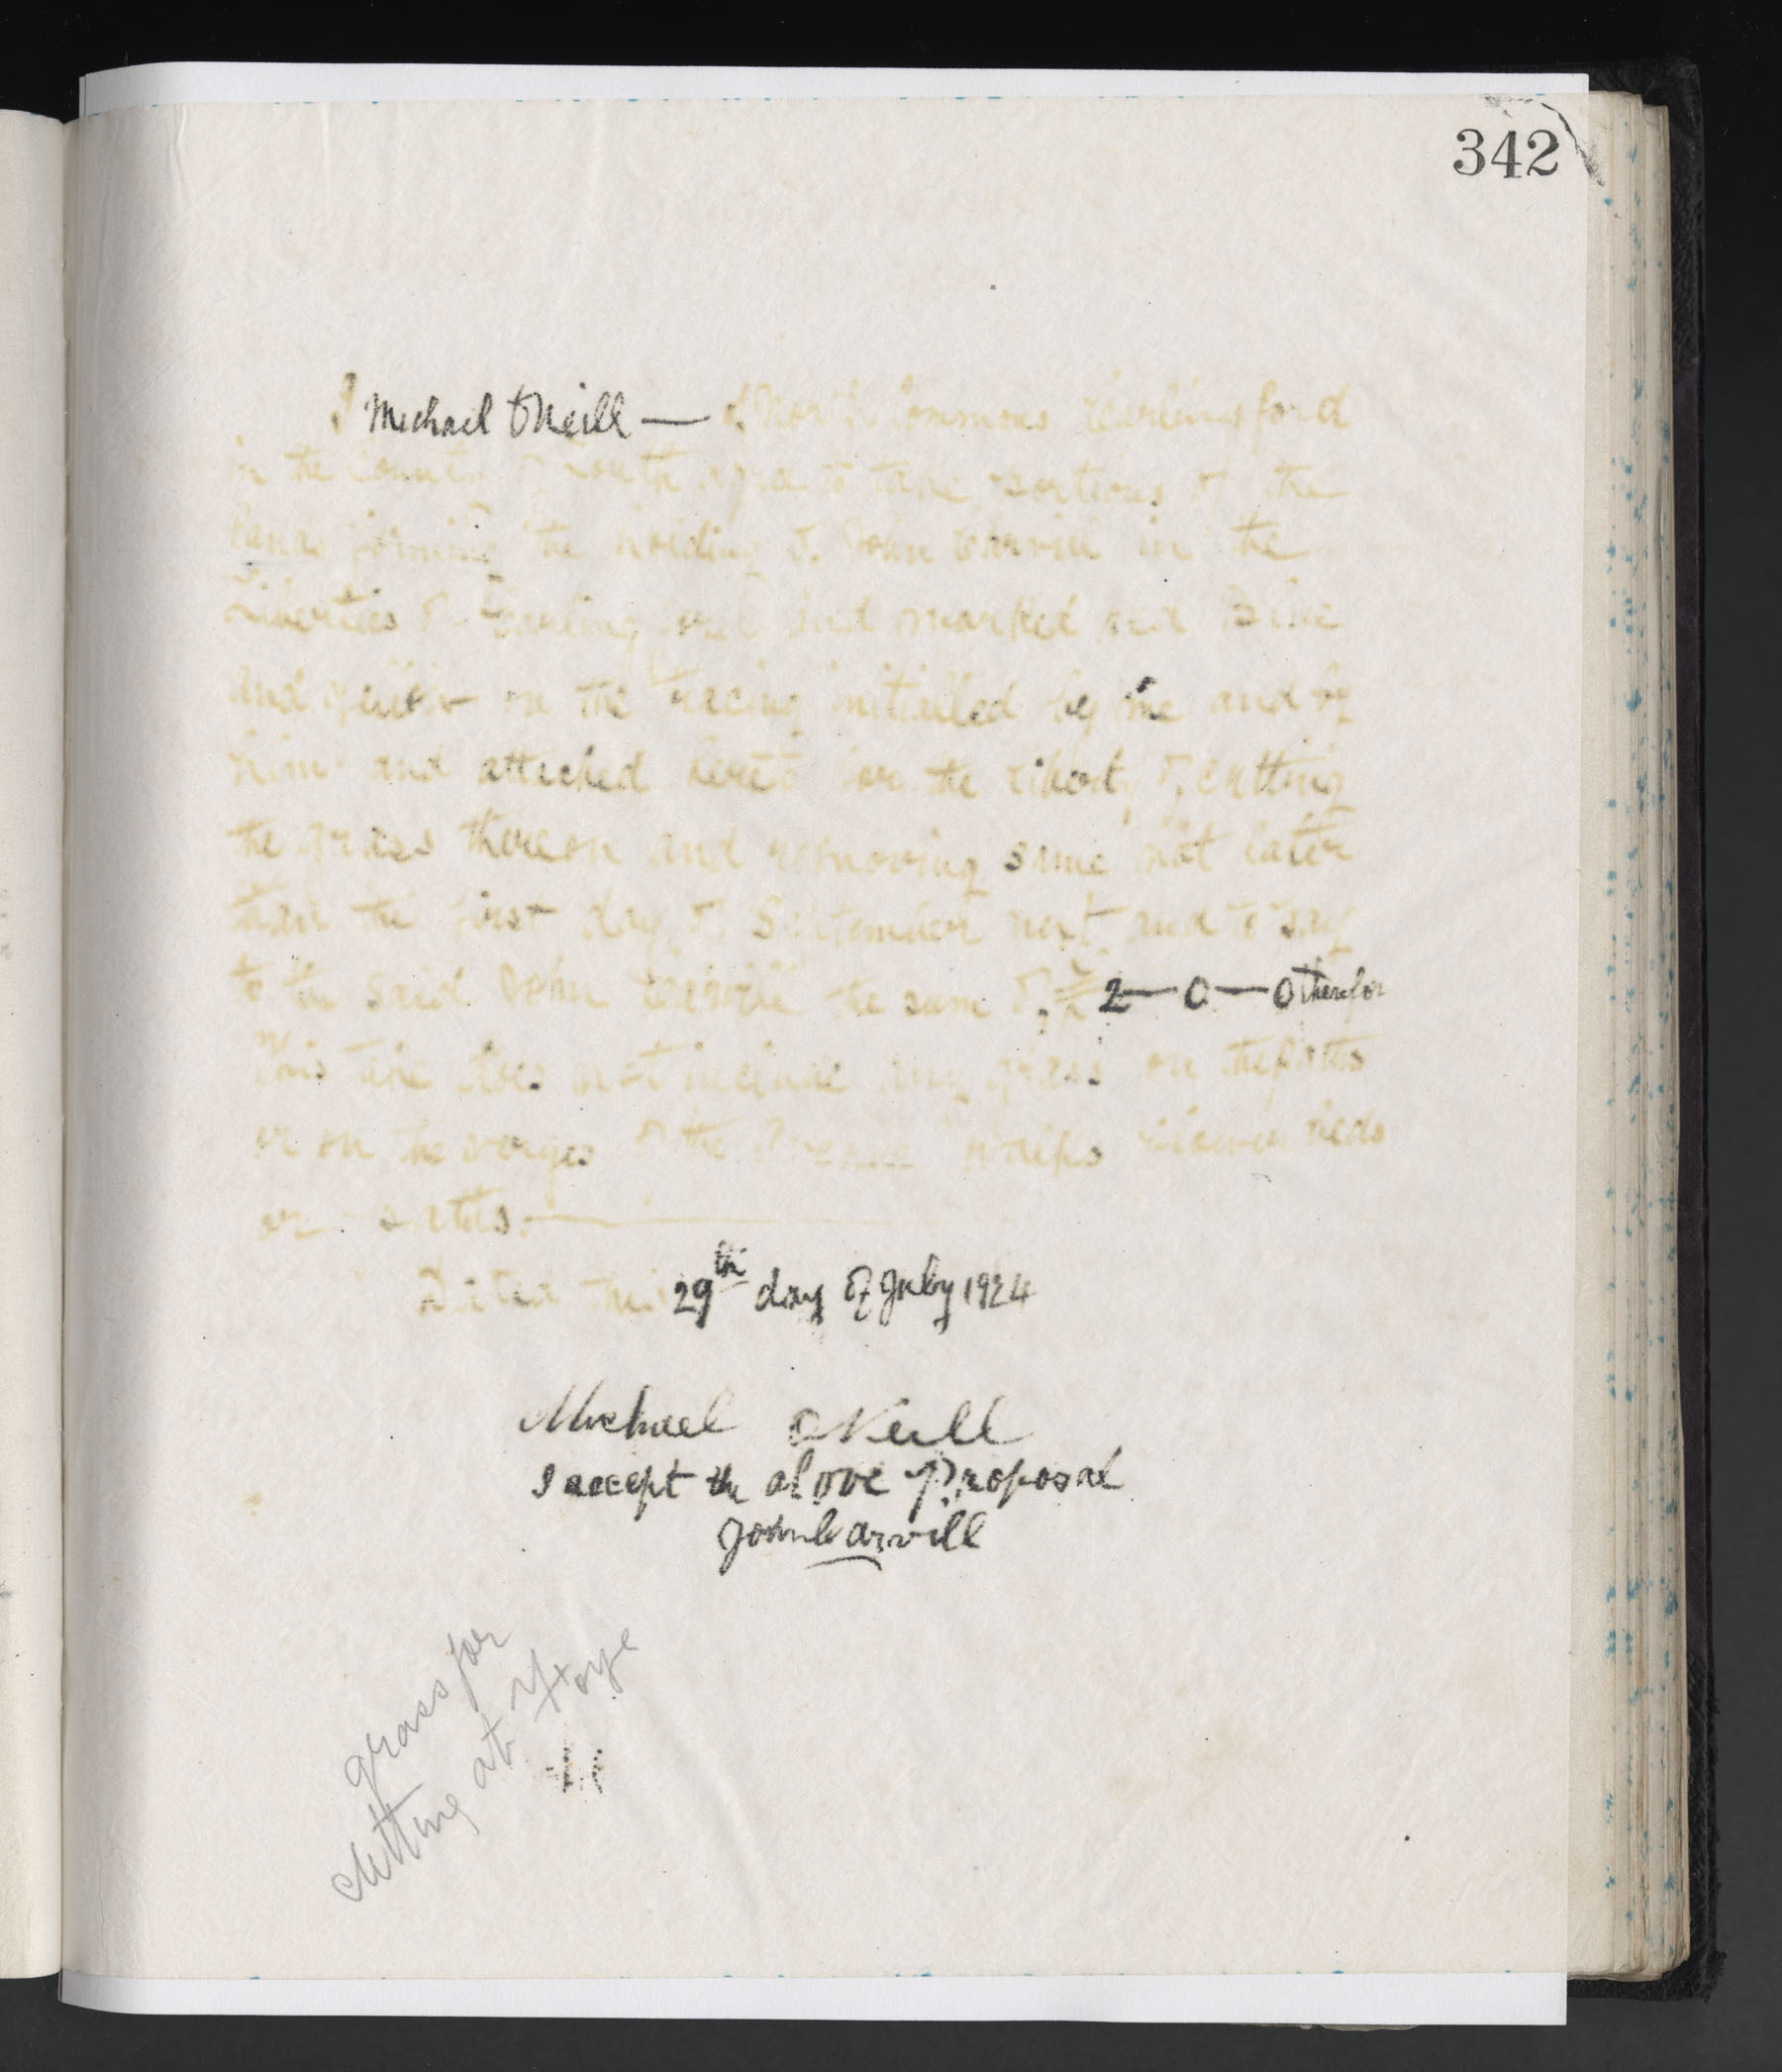 342
I Michael O'Neill — of North Commons Carlingford
in the County of Louth agree to take portions of the
lands forming the holding of John Carvill in the
Liberties of Carlingford and marked red Blue
and yellow on the tracing initialled by me and by
him and attached hereto for the liberty of cutting
the grass thereon and removing same not later
than the first day of September next and to pay
to the said John Carvill the sum of £2—0—0 therefor
This take does not include any grass on the paths
or on the verges of the Avenue walks flower beds
or
Dated this 29th day of July 1924
Michael ONeill
I accept the above Proposal
John Carvill
grass for
cutting at